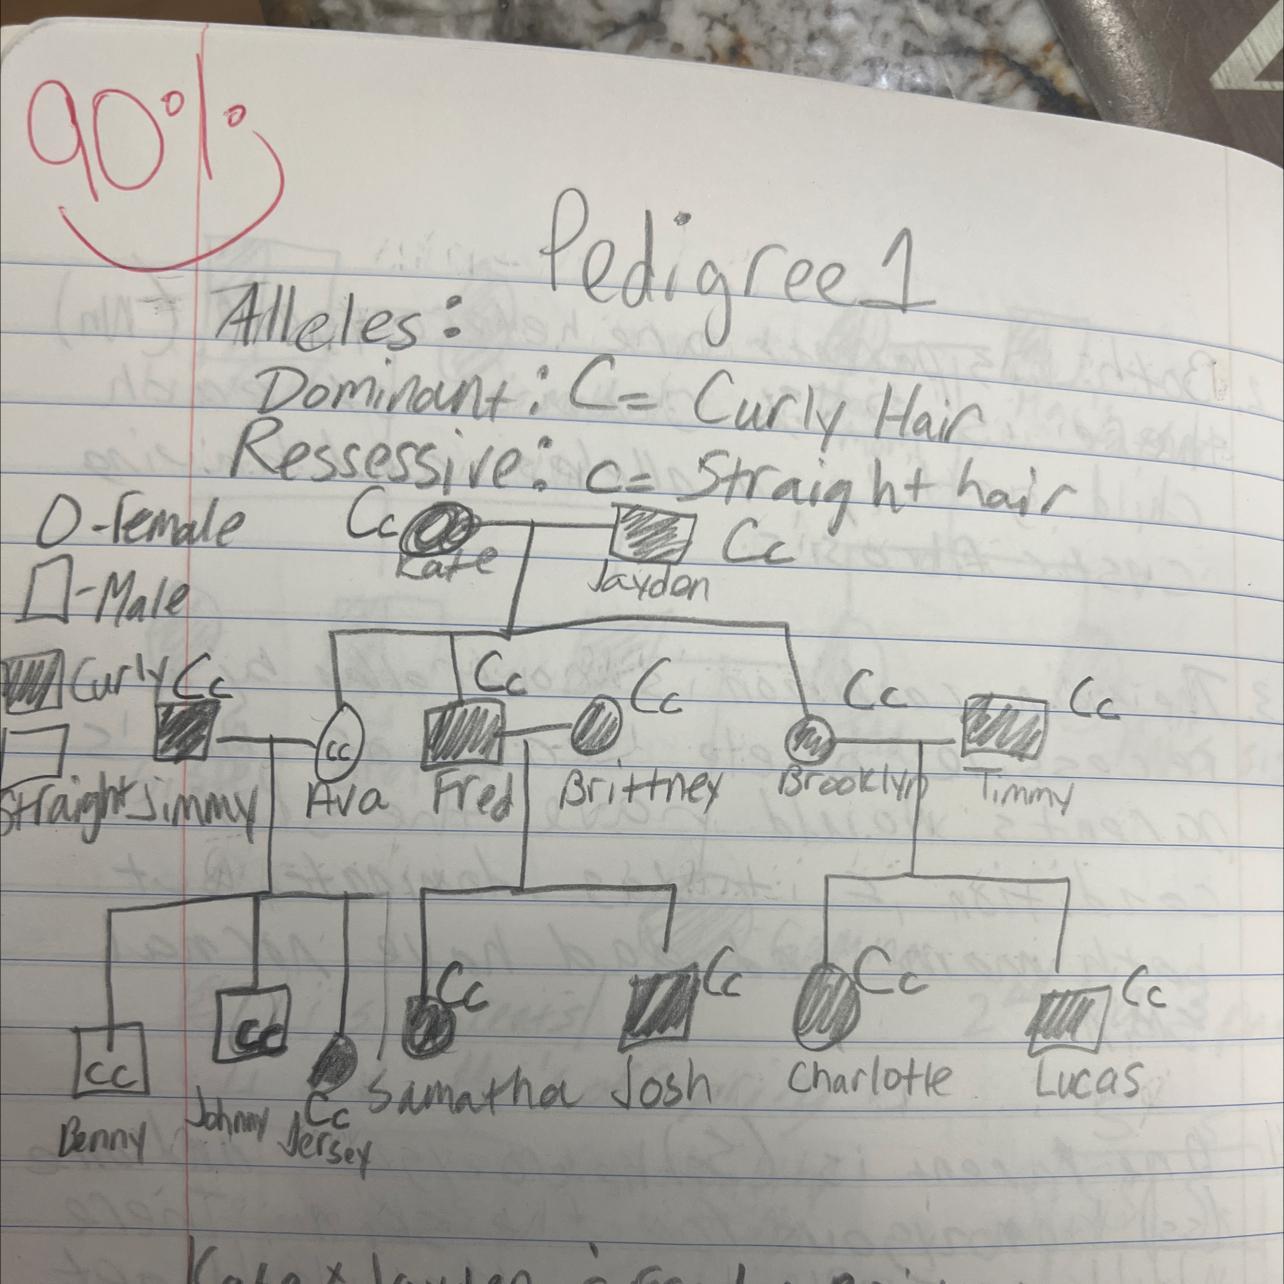 90%
Pedigree 1
Alleles:
Dominant: C= Curly Hair
Ressessive: c= Straight hair
O-Female
Cc
Cc
Kate
Jayden
-Male
Curly
Cc
Cc
Cc
Cc
Cc
cc
Straight
Jimmy
Ava
Fred
Brittney
Brooklyn
Timmy
Cc
Cc
Cc
Cc
cc
cc
Cc
Benny
Johnny
Jersey
Samatha
Josh
Charlotte
Lucas